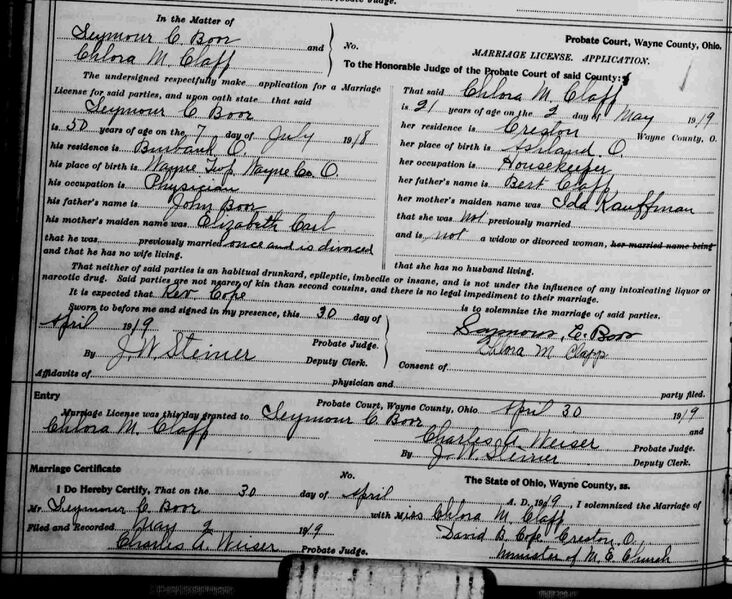 Probate Judge.
In the Matter of
Seymour C Boor
and
Chlora M. Clapp
No.
Probate Court, Wayne County, Ohio.
MARRIAGE LICENSE. APPLICATION.
To the Honorable Judge of the Probate Court of said County:
The undersigned respectfully make application for a Marriage
License for said parties, and upon oath state that said
Seymour C Boor
is 50 years of age on the 7 day of July 1918
his residence is Burbank O.
his place of birth is Wayne Twp, Wayne Co. O.
his occupation is Physician
his father's name is John Boor
his mother's maiden name was Elizabeth
that he was previously married once and is divorced
and that he has no wife living.
That said Chlora M. Clapp
is 21 years of age on the 2 day of May 1919
her residence is Creston Wayne County, O.
her place of birth is Ashland O.
her occupation is Housekeeper
her father's name is Bert Clapp
her mother's maiden name was Ida Kauffman
that she was not previously married
and is not a widow or divorced woman, her married name being
that she has no husband living.
That neither of said parties is an habitual drunkard, epileptic, imbecile or insane, and is not under the influence of any intoxicating liquor or
narcotic drug. Said parties are not nearer of kin than second cousins, and there is no legal impediment to their marriage.
It is expected that Rev. Cope is to solemnize the marriage of said parties.
Sworn to before me and signed in my presence, this 30 day of
April 1919
Probate Judge.
By J. W. Steiner Deputy Clerk.
Seymour C. Boor
Chlora M Clapp
Consent of
Affidavits of physician and party filed.
Entry
Probate Court, Wayne County, Ohio April 30 1919
Marriage License was this day granted to Seymour C. Boor and
Chlora M. Clapp
Charles A. Weiser Probate Judge.
By J. W. Steiner Deputy Clerk.
Marriage Certificate
No.
The State of Ohio, Wayne County, ss.
I Do Hereby Certify, That on the 30 day of April A. D. 1919, I solemnized the Marriage of
Mr. Seymour C. Boor with Miss Chlora M. Clapp
Filed and Recorded May 2 1919
David B. Cope Creston O.,
Charles A. Weiser Probate Judge.
Minister of M. E. Church